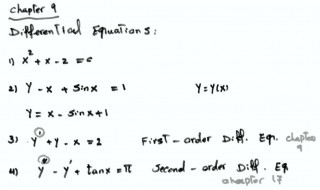 Chapter 9
Differential Equations:
1) x² + x - 2 = 0
2) Y - x + Sinx = 1 Y = Y(x)
Y = x - Sinx + 1
3) y' + y - x = 2 First-order Diff. Eqn. chapter 9
4) y'' - y' + tanx = π Second-order Diff. Eq chapter 17